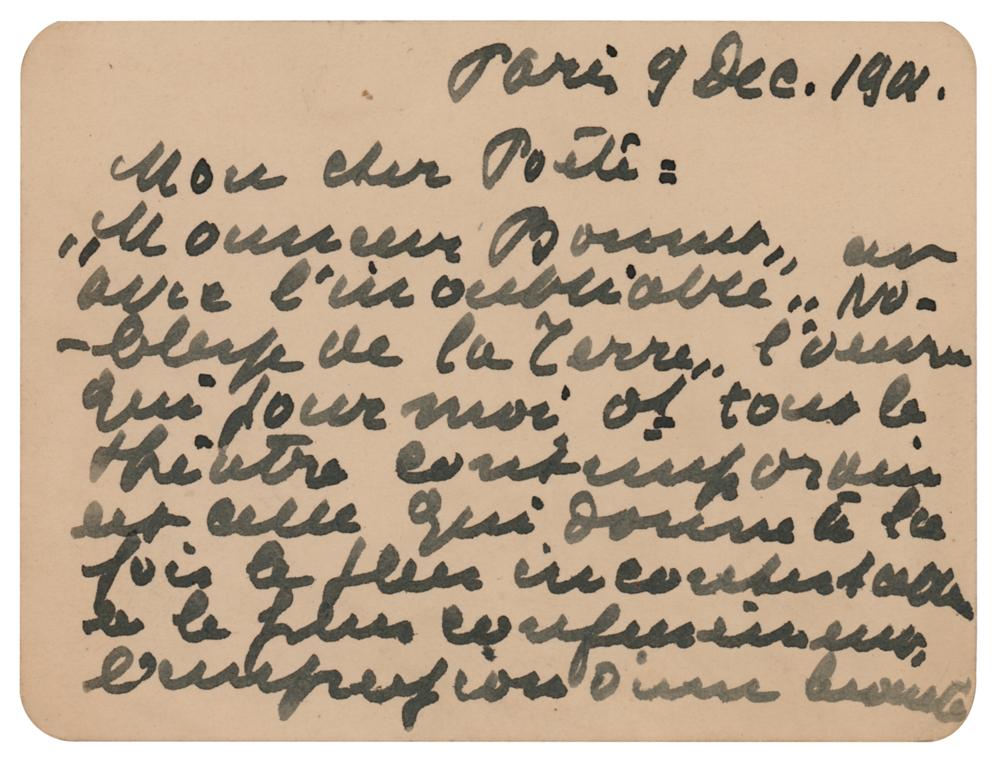 Paris 9 Dec. 1901.
Mon cher Poète:
„Monsieur Bonnet„ est
avec l'inoubliable „No-
-blesse de la Terre„ l'oeuvre
qui pour moi et tous le
théâtre contemporain
est celle qui donne à la
fois le plus incontestable
e le plus
l'impression d'une beauté